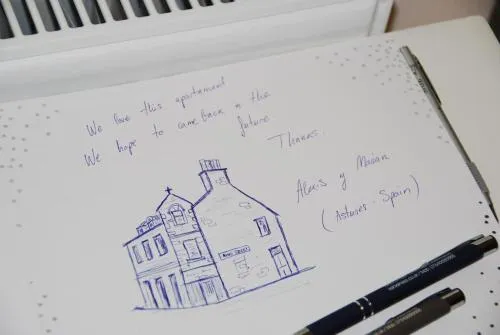 We love this apartament
We hope to came back in the
future.
Thanks.
Alexis y Marian
(Asturies. Spain)